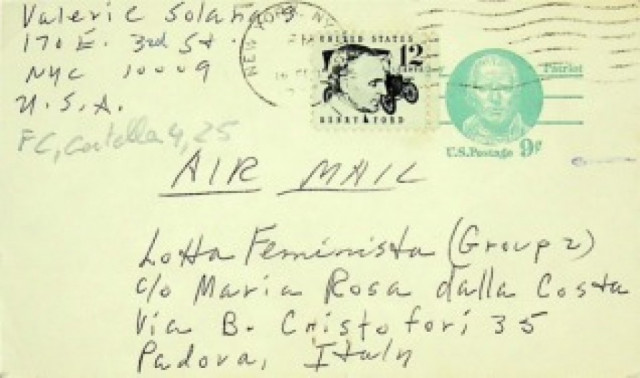 Valerie Solanas
170 E. 3rd St.
NYC 10009
U.S.A.
NEW YORK, NY
UNITED STATES
12
HENRY FORD
Patriot
U.S. Postage 9¢
FC, Cartella 4, 25
AIR MAIL
Lotta Feminista (Group 2)
c/o Maria Rosa dalla Costa
Via B. Cristofori 35
Padova, Italy